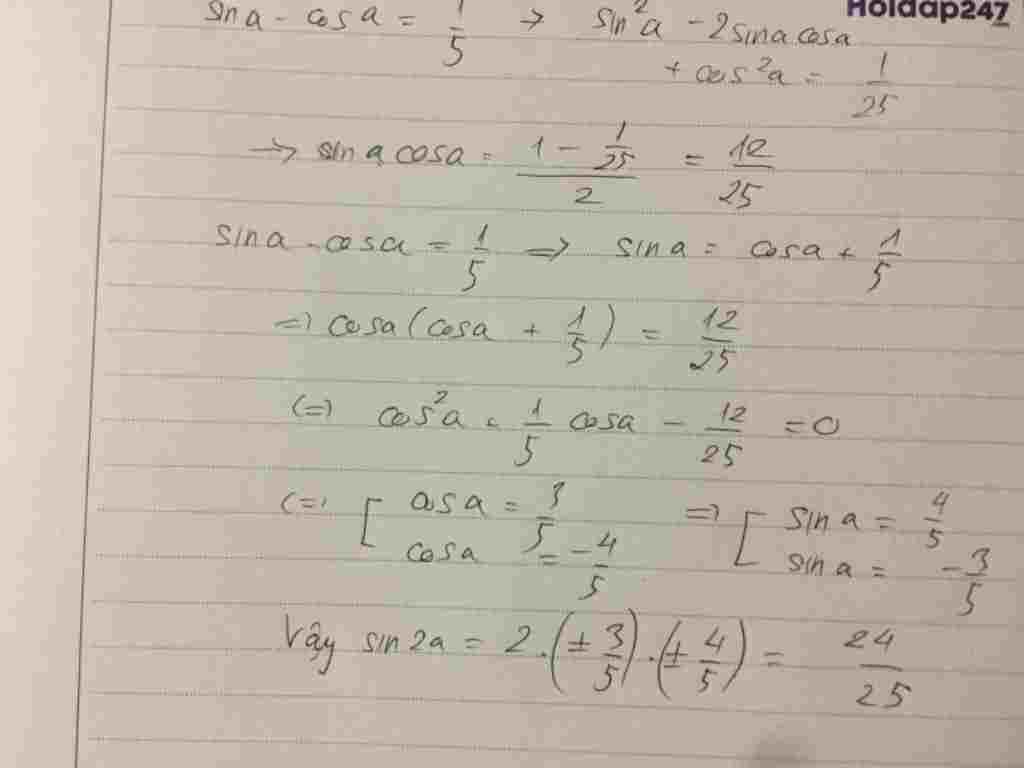 Hoidap247
sina - cosa = 1/5 → sin²a - 2sinacosa
+ cos²a = 1/25
→ sinacosa = (1 - 1/25)/2 = 12/25
sina - cosa = 1/5 => sina = cosa + 1/5
=> cosa(cosa + 1/5) = 12/25
(=) cos²a = 1/5 cosa - 12/25 = 0
(=) [ cosa = 3/5 => [ sina = 4/5
cosa = -4/5 sina = -3/5
Vậy sin2a = 2.(± 3/5).(± 4/5) = 24/25